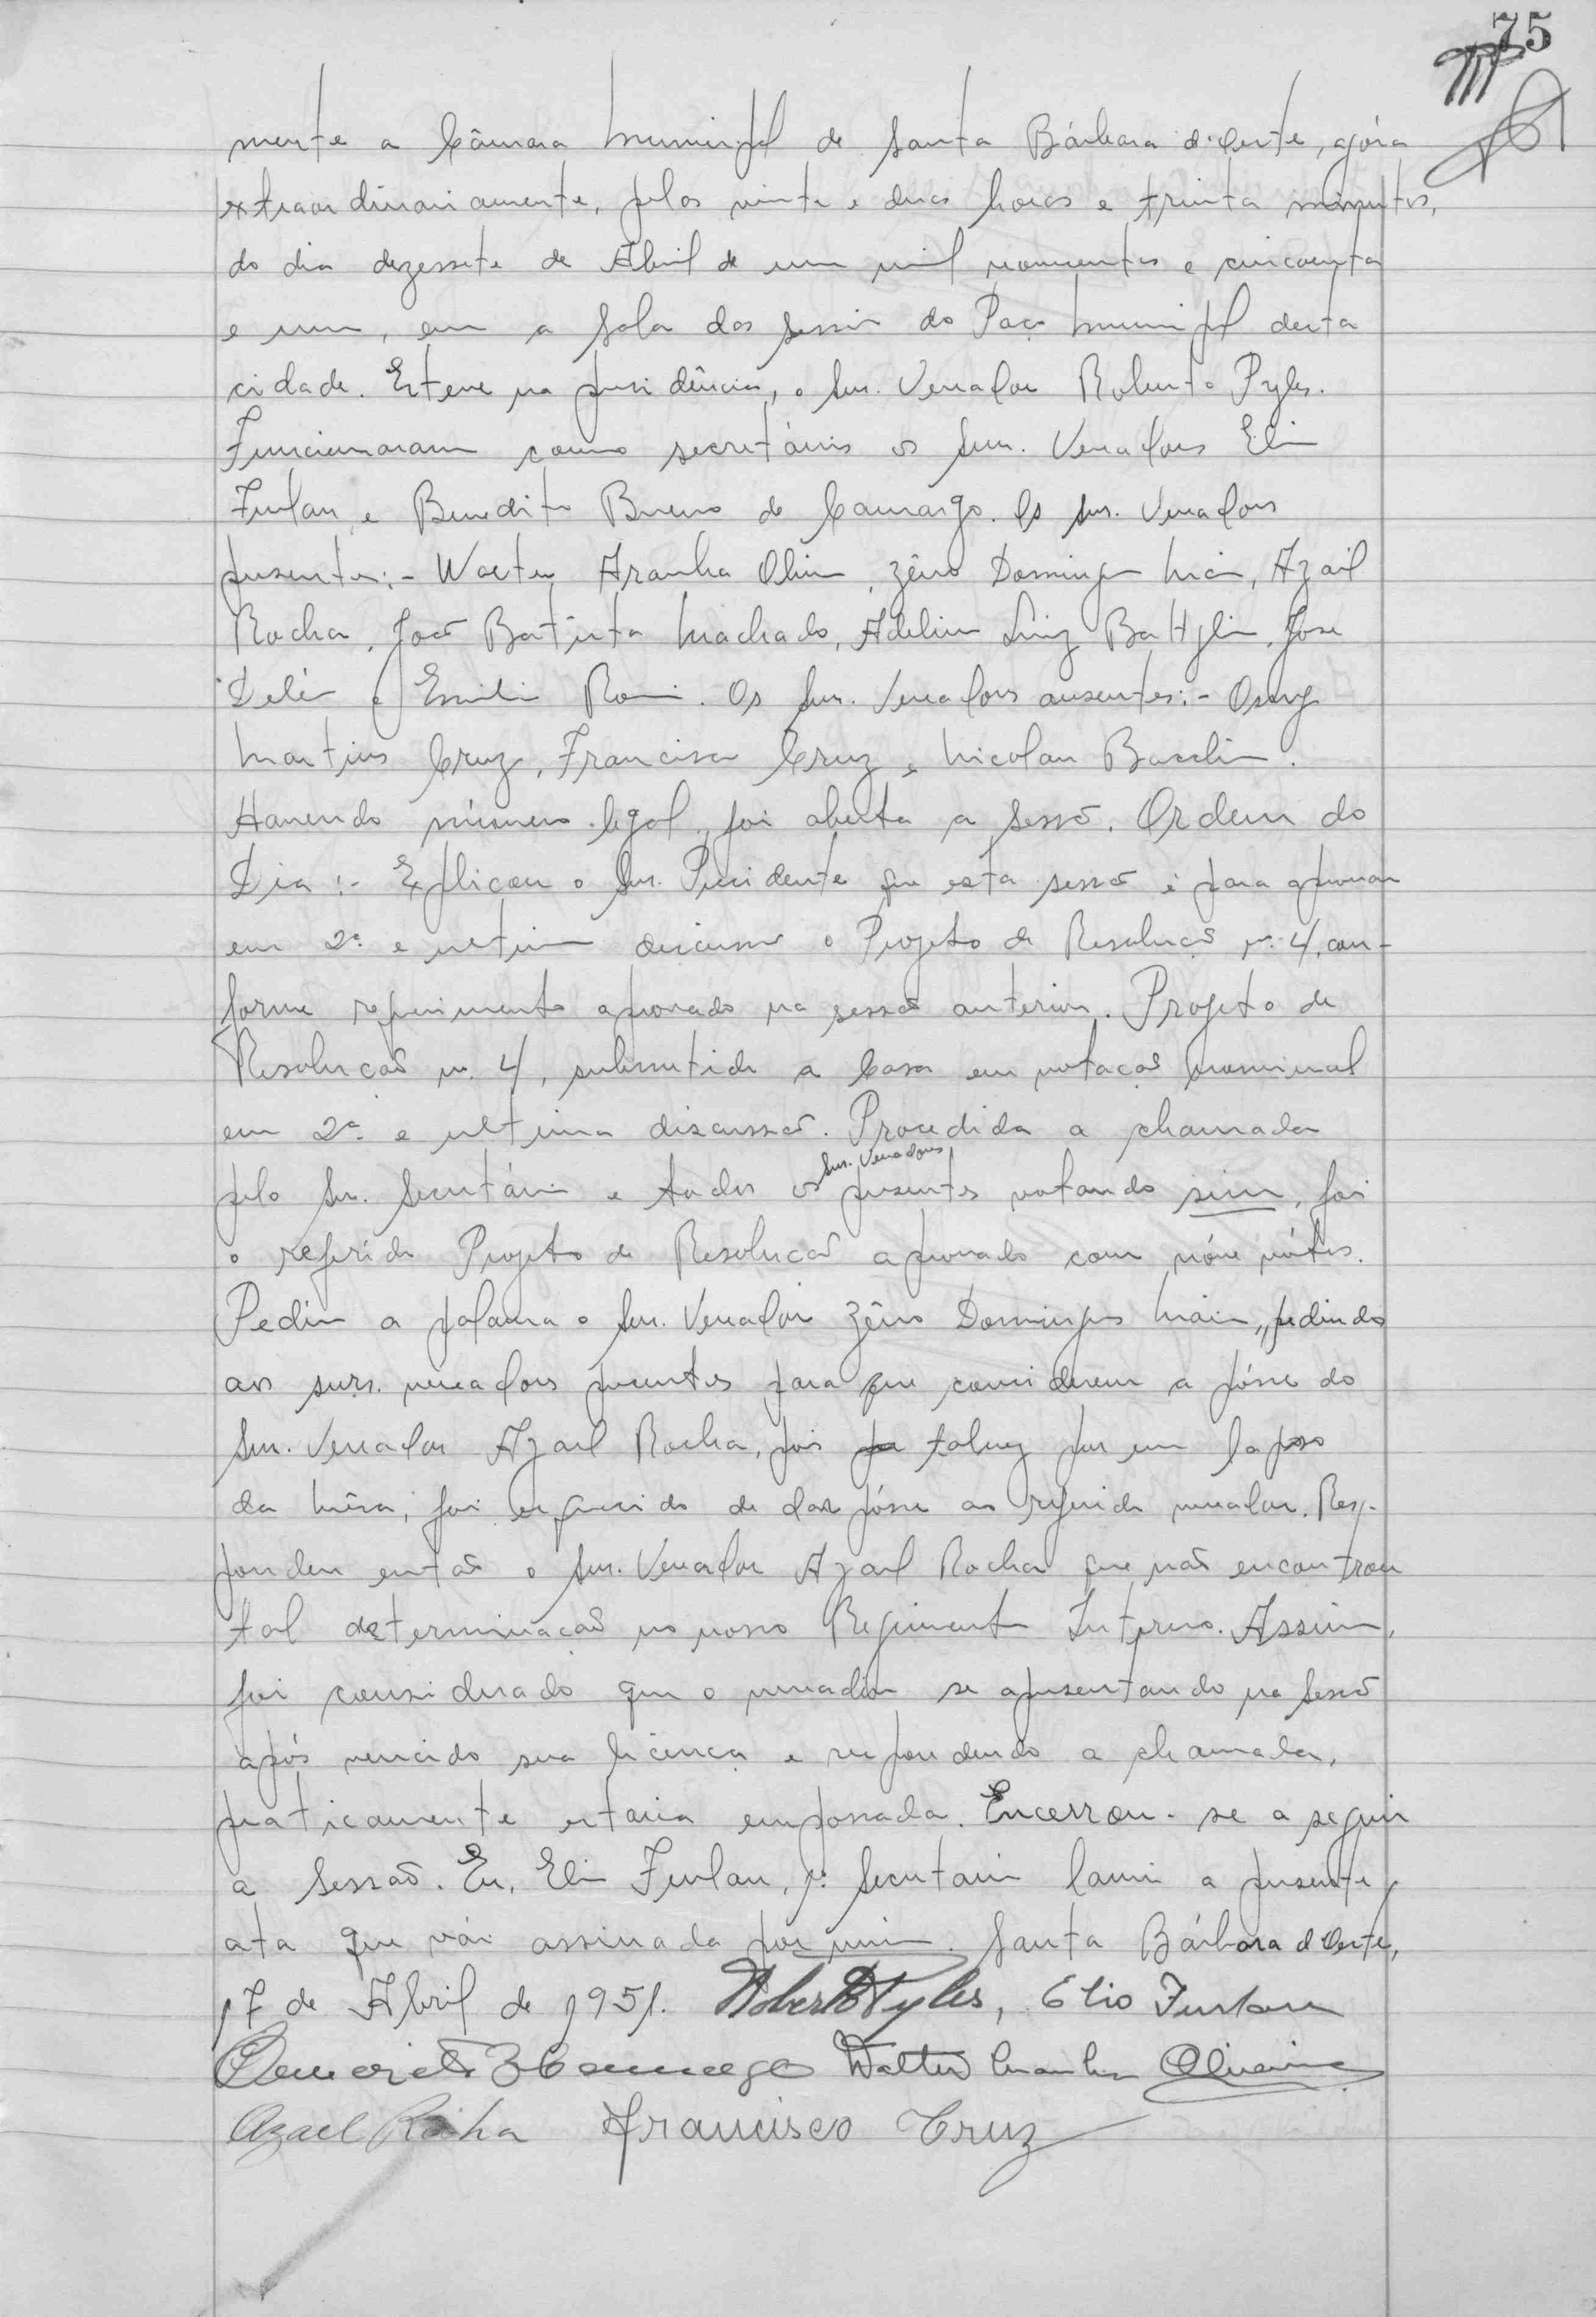 75
mente a Câmara Municipal de Santa Bárbara d'Oeste, agóra
extraordinariamente, pelas vinte e duas horas e trinta minutos,
do dia dezessete de Abril de um mil novecentos e cincoenta
e um, em a sala das sessões do Paço Municipal desta
cidade. Esteve na presidência, o Snr. Vereador Roberto Pyles.
Funcionaram como secretários os Snrs. Vereadores Elio
Furlan e Benedito Bueno de Camargo. Os Snrs. Vereadores
presentes:- Walter Aranha Oliveira, Zêno Domingos Maia, Azail
Rocha, João Batista Machado, Adelino Luiz Battglin, José
Deléo e Emilio Romi. Os Snrs. Vereadores ausentes:- Osmy
Martins Cruz, Francisco Cruz e Nicolau Bacchin.
Havendo número legal, foi aberta a sessão. Ordem do
Dia:- Explicou o Snr. Presidente que esta sessão é para aprovar
em 2ª e ultima discussão o Projeto de Resolução nº 4, con-
forme requerimento aprovado na sessão anterior. Projeto de
Resolução n. 4, submetido a Casa em votação nominal
em 2ª e ultima discussão. Procedida a chamada
pelo Snr. Secretário e todos os Snrs. Vereadores presentes votando sim, foi
o referido Projeto de Resolução aprovado com nóve vótos.
Pediu a palavra o Snr. Vereador Zêno Domingos Maia, pedindo
aos snrs. vereadores presentes para que considerem a pósse do
Snr. Vereador Azael Rocha, pois talvez por um lapso
da Mêsa, foi esquecido de dar pósse ao referido vereador. Res-
pondeu então o Snr. Vereador Azael Rocha que não encontrou
tal determinação no nosso Regimento Interno. Assim,
foi considerado que o vereador se apresentando na sessão
após vencido sua licença e respondendo a chamada,
praticamente estaria empossado. Encerrou-se a seguir
a sessão. Eu, Elio Furlan, 1º Secretario lavrei a presente
ata que vai assinada por mim. Santa Bárbara d'Oeste,
17 de Abril de 1951. Roberto Pyles, Elio Furlan
Benedito B Camargo Walter Aranha Oliveira
Azael Rocha Francisco Cruz